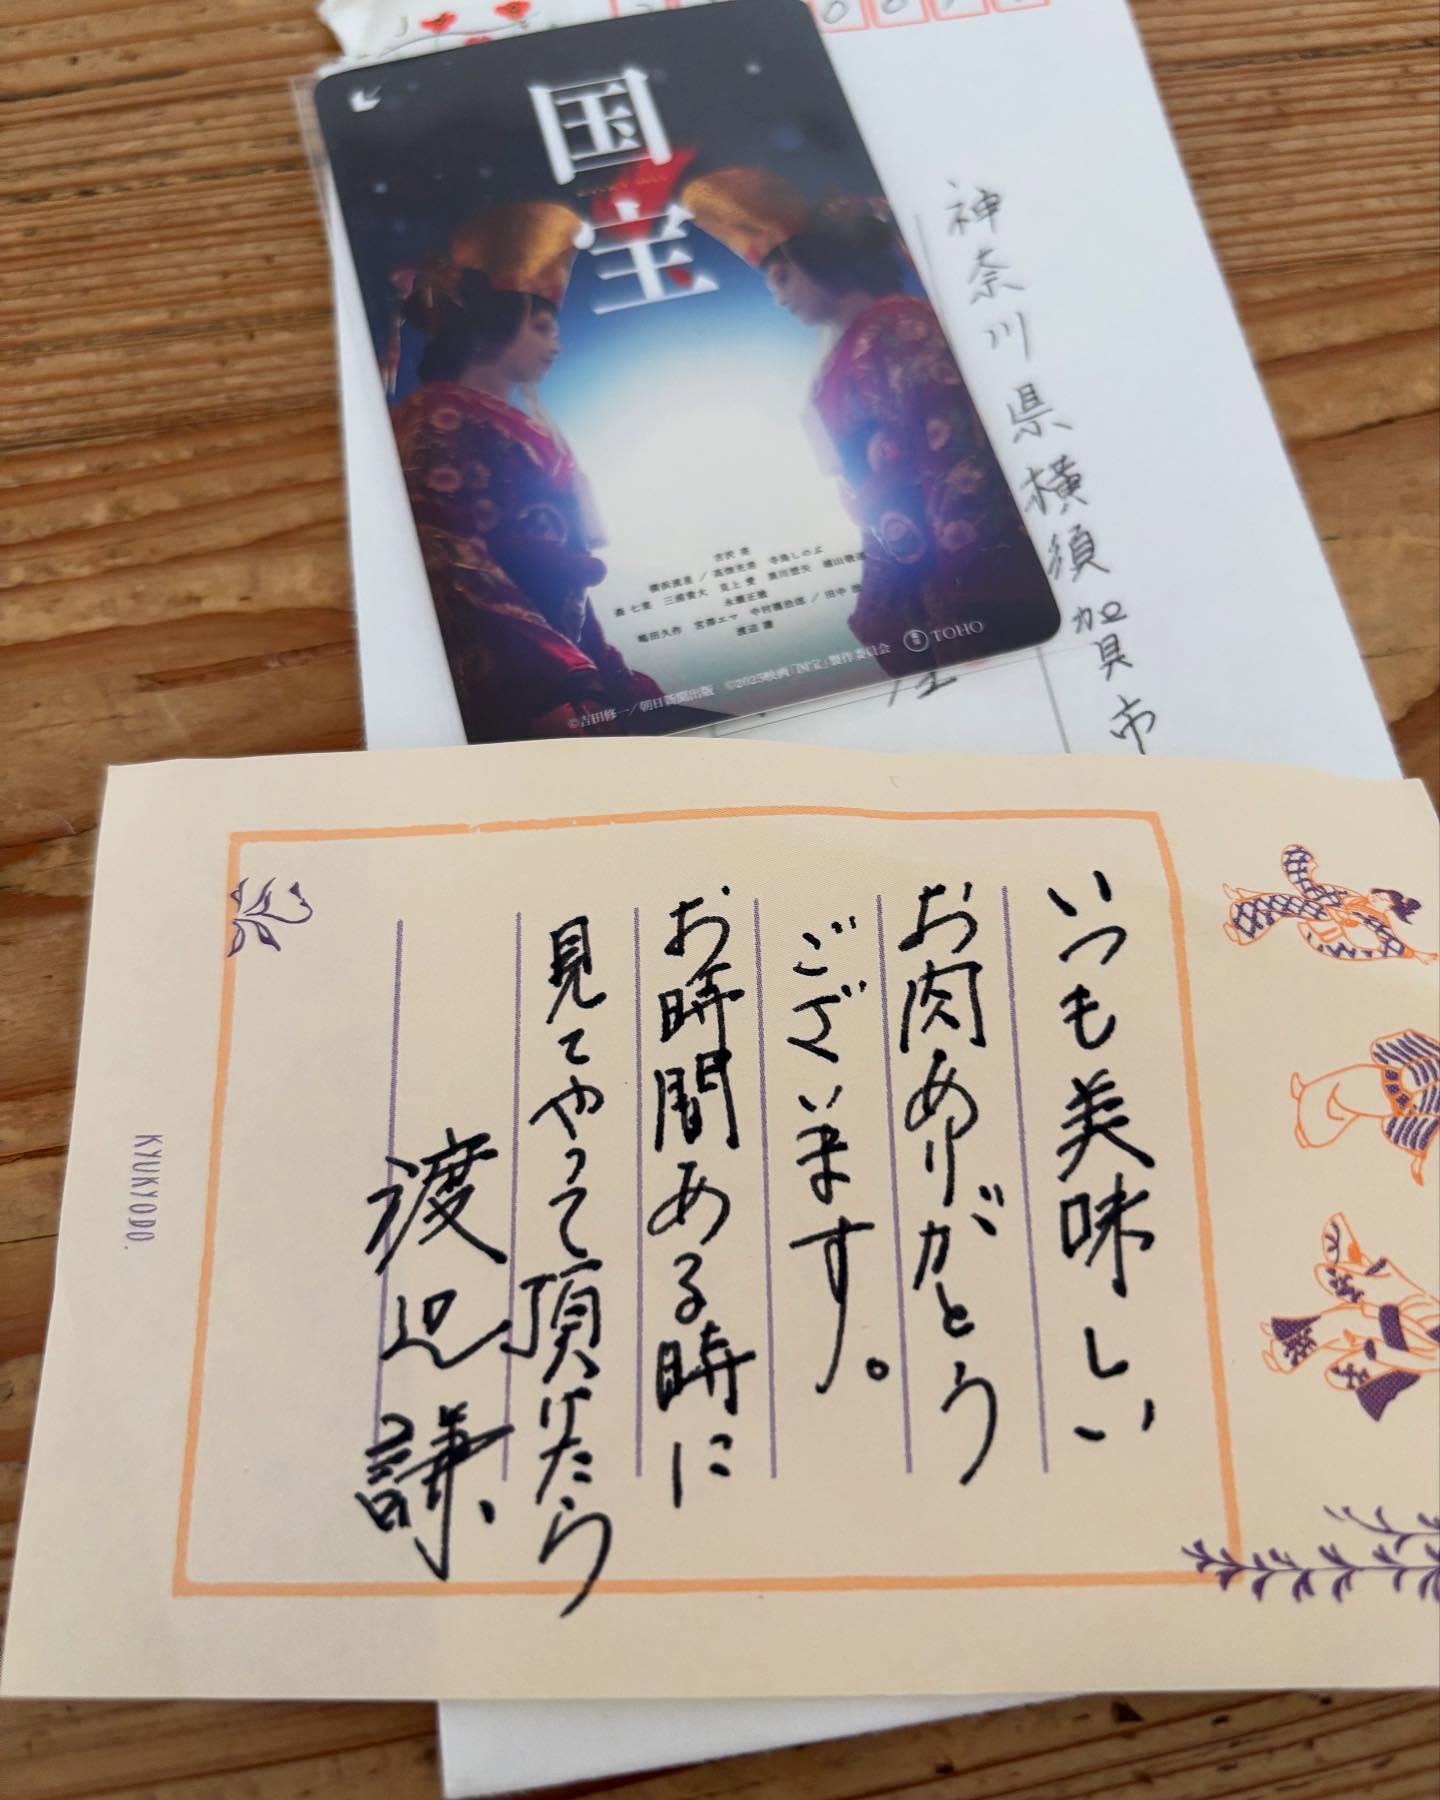 国宝
吉沢 亮
横浜流星／高畑充希 寺島しのぶ
森 七菜 三浦貴大 見上 愛 黒川想矢 越山敬達
永瀬正敏
嶋田久作 宮澤エマ 中村鴈治郎／田中 泯
渡辺 謙
©吉田修一／朝日新聞出版 ©2025映画「国宝」製作委員会
TOHO
神奈川県横須賀市
いつも美味しい
お肉ありがとう
ございます。
お時間ある時に
見てやって頂けたら
渡辺謙、
KYUKYODO.